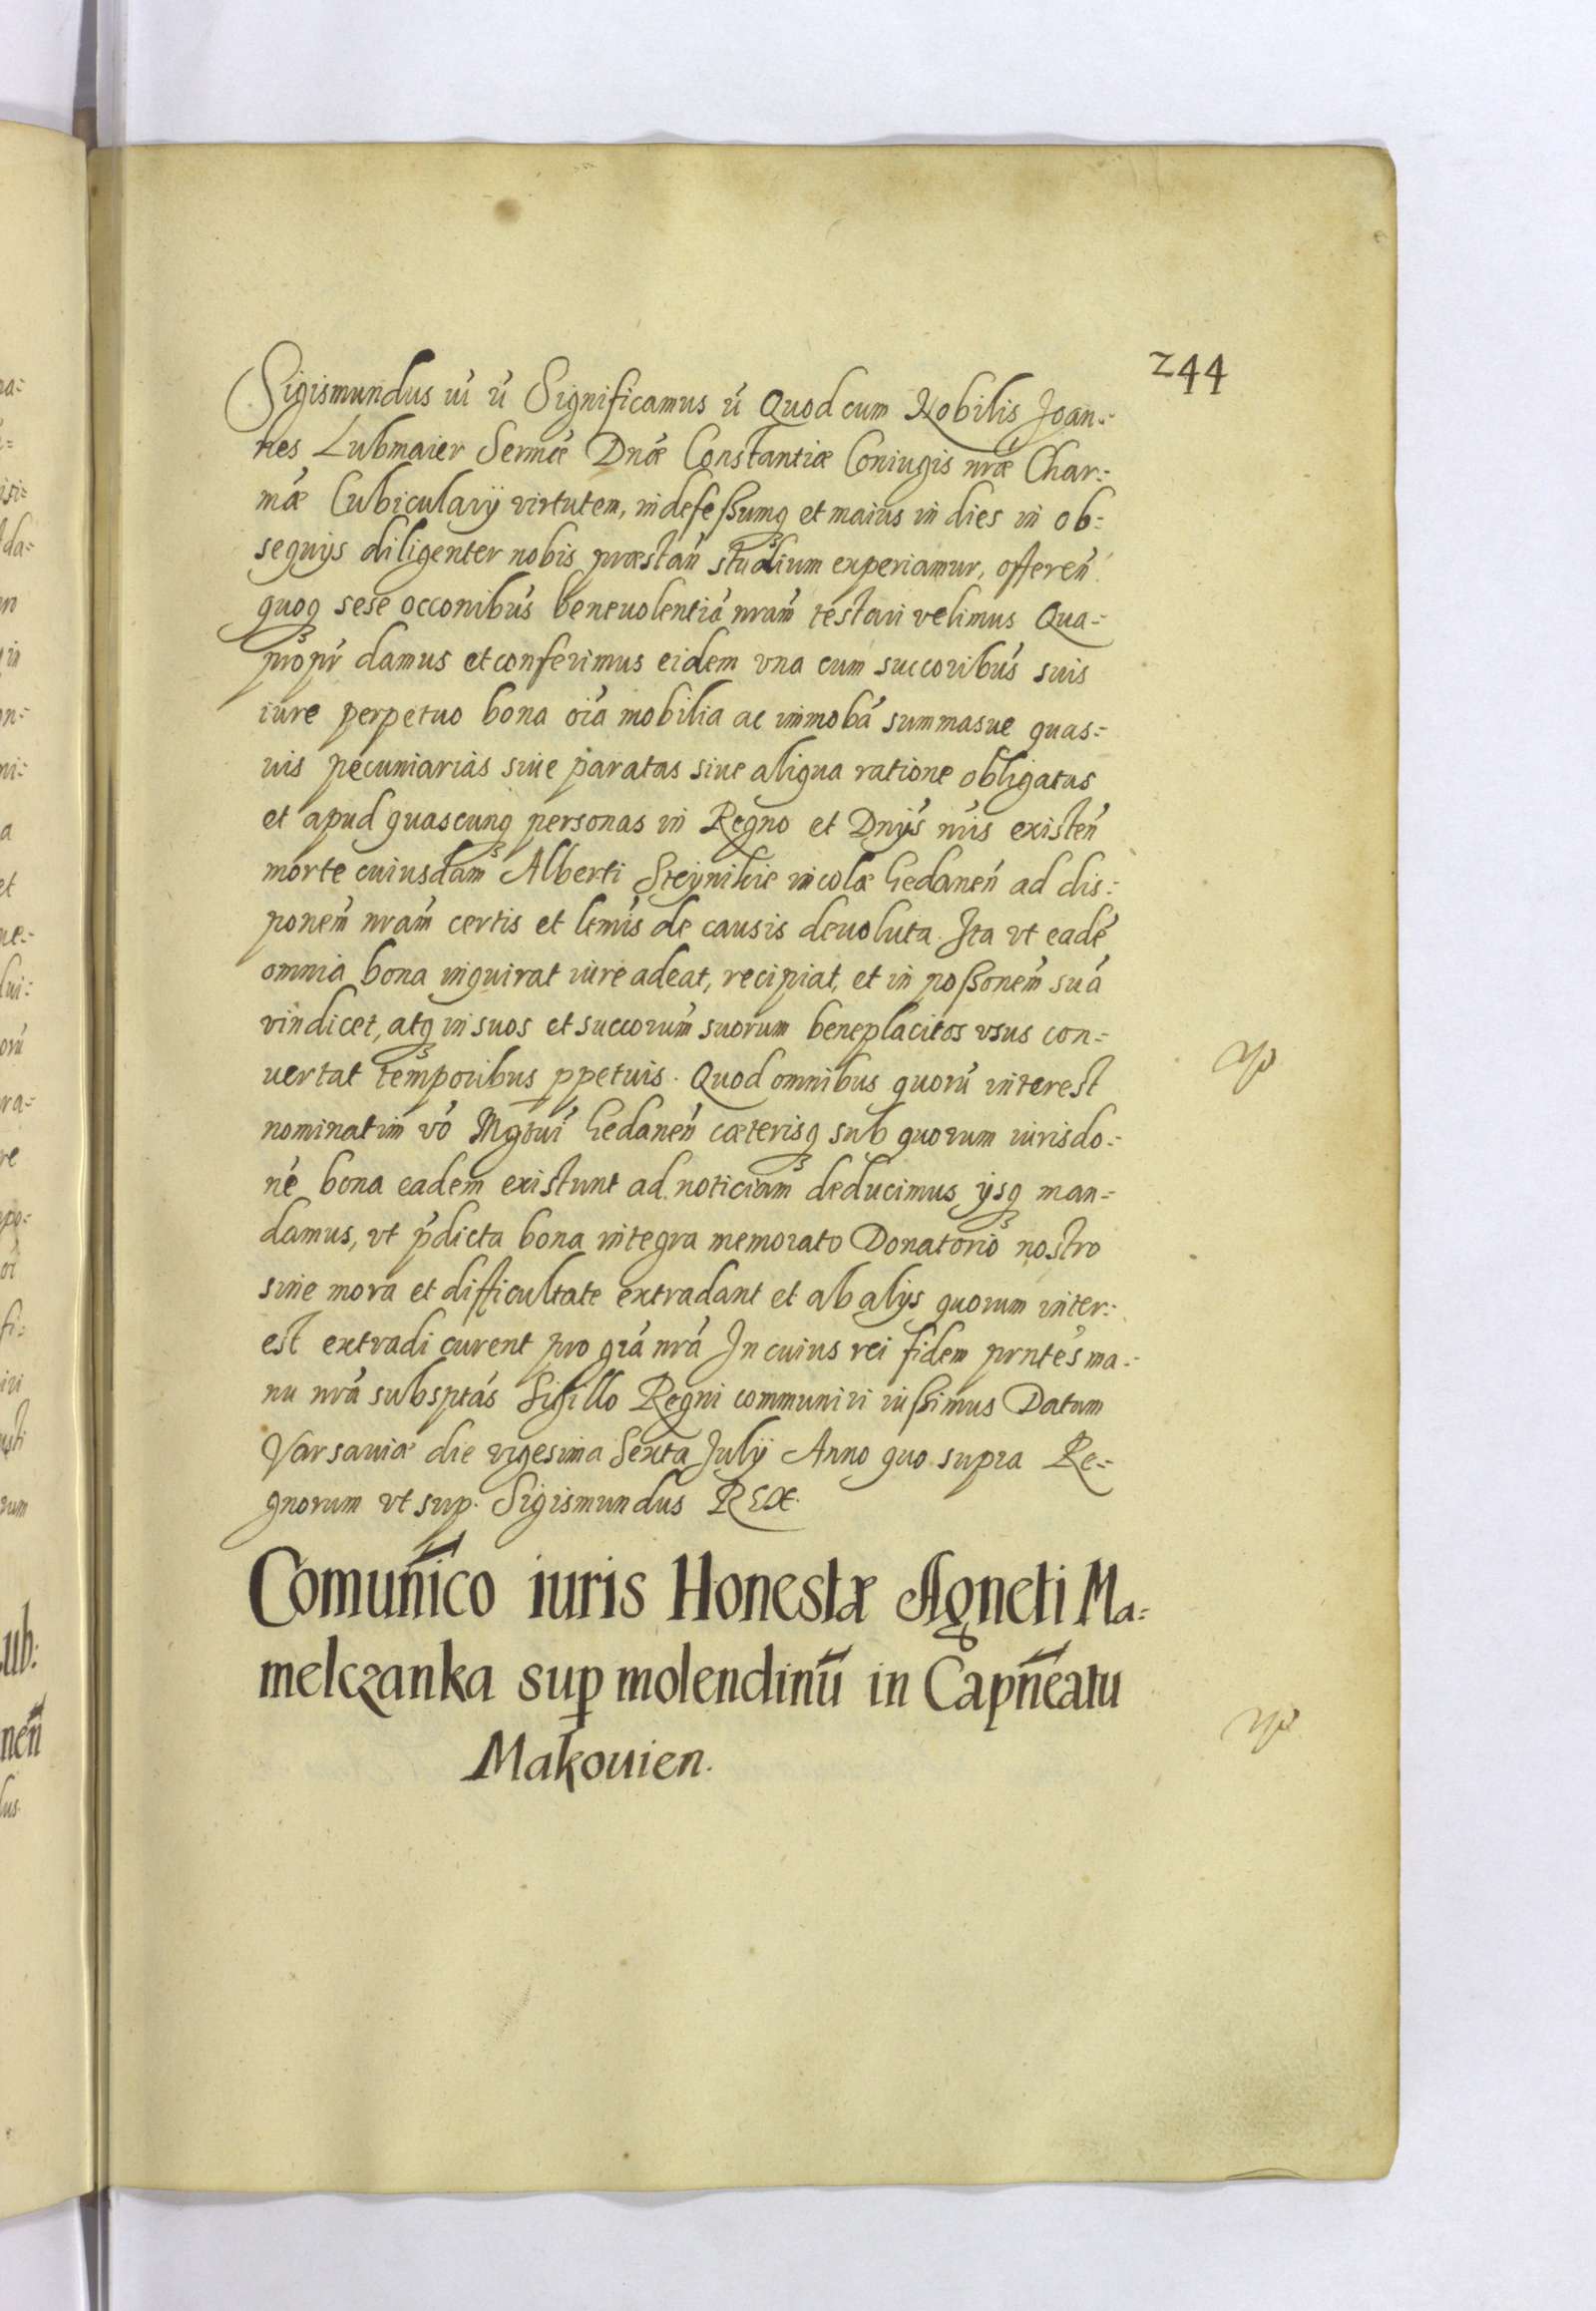 244
Sigismundus ııı ıı Significamus ıı Quod cum Nobilis Joan=
nes Lubmaier Sermæ Dnæ Constantiæ Coniugis nræ Char=
mæ Cubicularÿ virtutem, indefeßumq et maius in dies in ob=
sequÿs diligenter nobis præstan̄ studium experiamur, offeren̄
quoq sese occonibus beneuolentiā nram̄ testari velimus Qua=
propr damus et conferimus eidem vna cum succoribus suis
iure perpetuo bona oīa mobilia ac immobā summasue quas=
uis pecuniarias siue paratas siue aliqua ratione obligatas
et apud quascunq personas in Regno et Dnÿs nr̄is existen̄
morte cuiusdam Alberti Steÿnikie incolæ Gedanen̄ ad dis=
ponem̄ nram̄ certis et ltmis de causis deuoluta. Ita vt eadē
omnia bona inquirat iure adeat, recipiat, et in poßonem̄ suā
vindicet, atq in suos et succorum suorum beneplacitos vsus con=
uertat temporibus ppetuis. Quod omnibus quorū interest
nominatim vō Mgrui Gedanen̄ cæterisq sub quorum iurisdo=
nē bona eadem existunt ad noticiam deducimus ÿsq man=
damus, vt p̄dicta bona integra memorato Donatorio nostro
sine mora et difficultate extradant et ab alÿs quorum inter=
est extradi curent pro grā nrā In cuius rei fidem prntēs ma=
nu nrā subsptās Sigillo Regni communiri iußimus Datum
Varsauiæ die vigesima Sexta Julÿ Anno quo supra Re=
gnorum vt sup. Sigismundus REX.
Comun̄ico iuris Honestæ Agneti Ma=
melczanka sup molendinū in Capn̄eatu
Makouien.